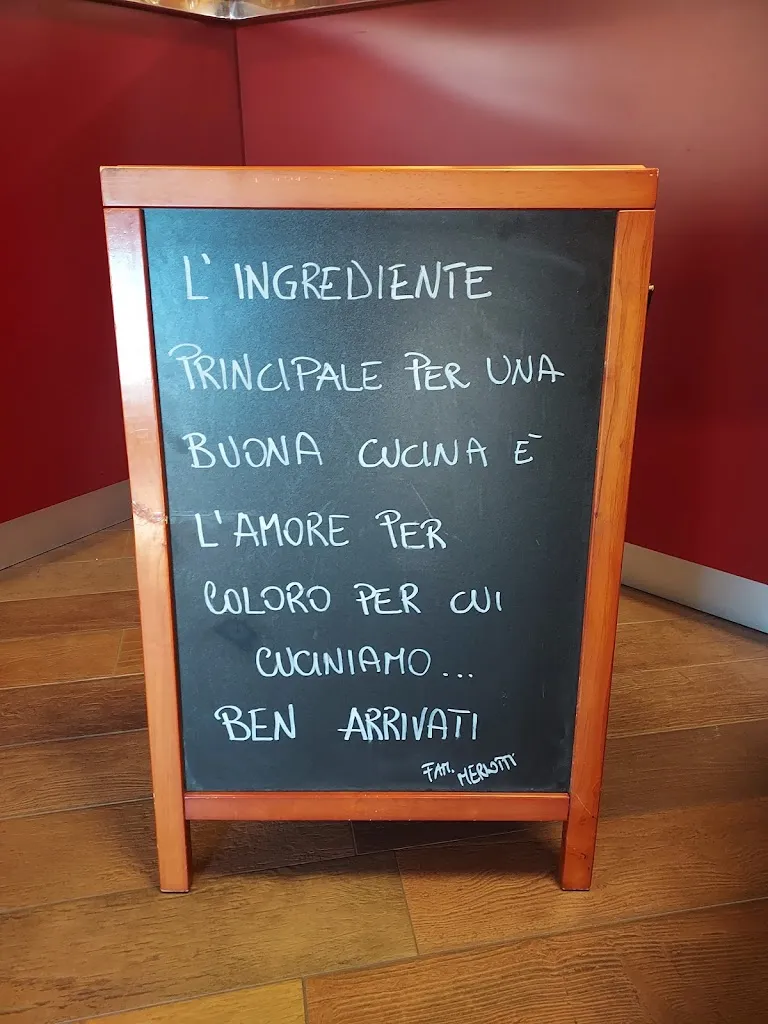 L'INGREDIENTE
PRINCIPALE PER UNA
BUONA CUCINA È
L'AMORE PER
COLORO PER CUI
CUCINIAMO...
BEN ARRIVATI
FAM. MERLOTTI